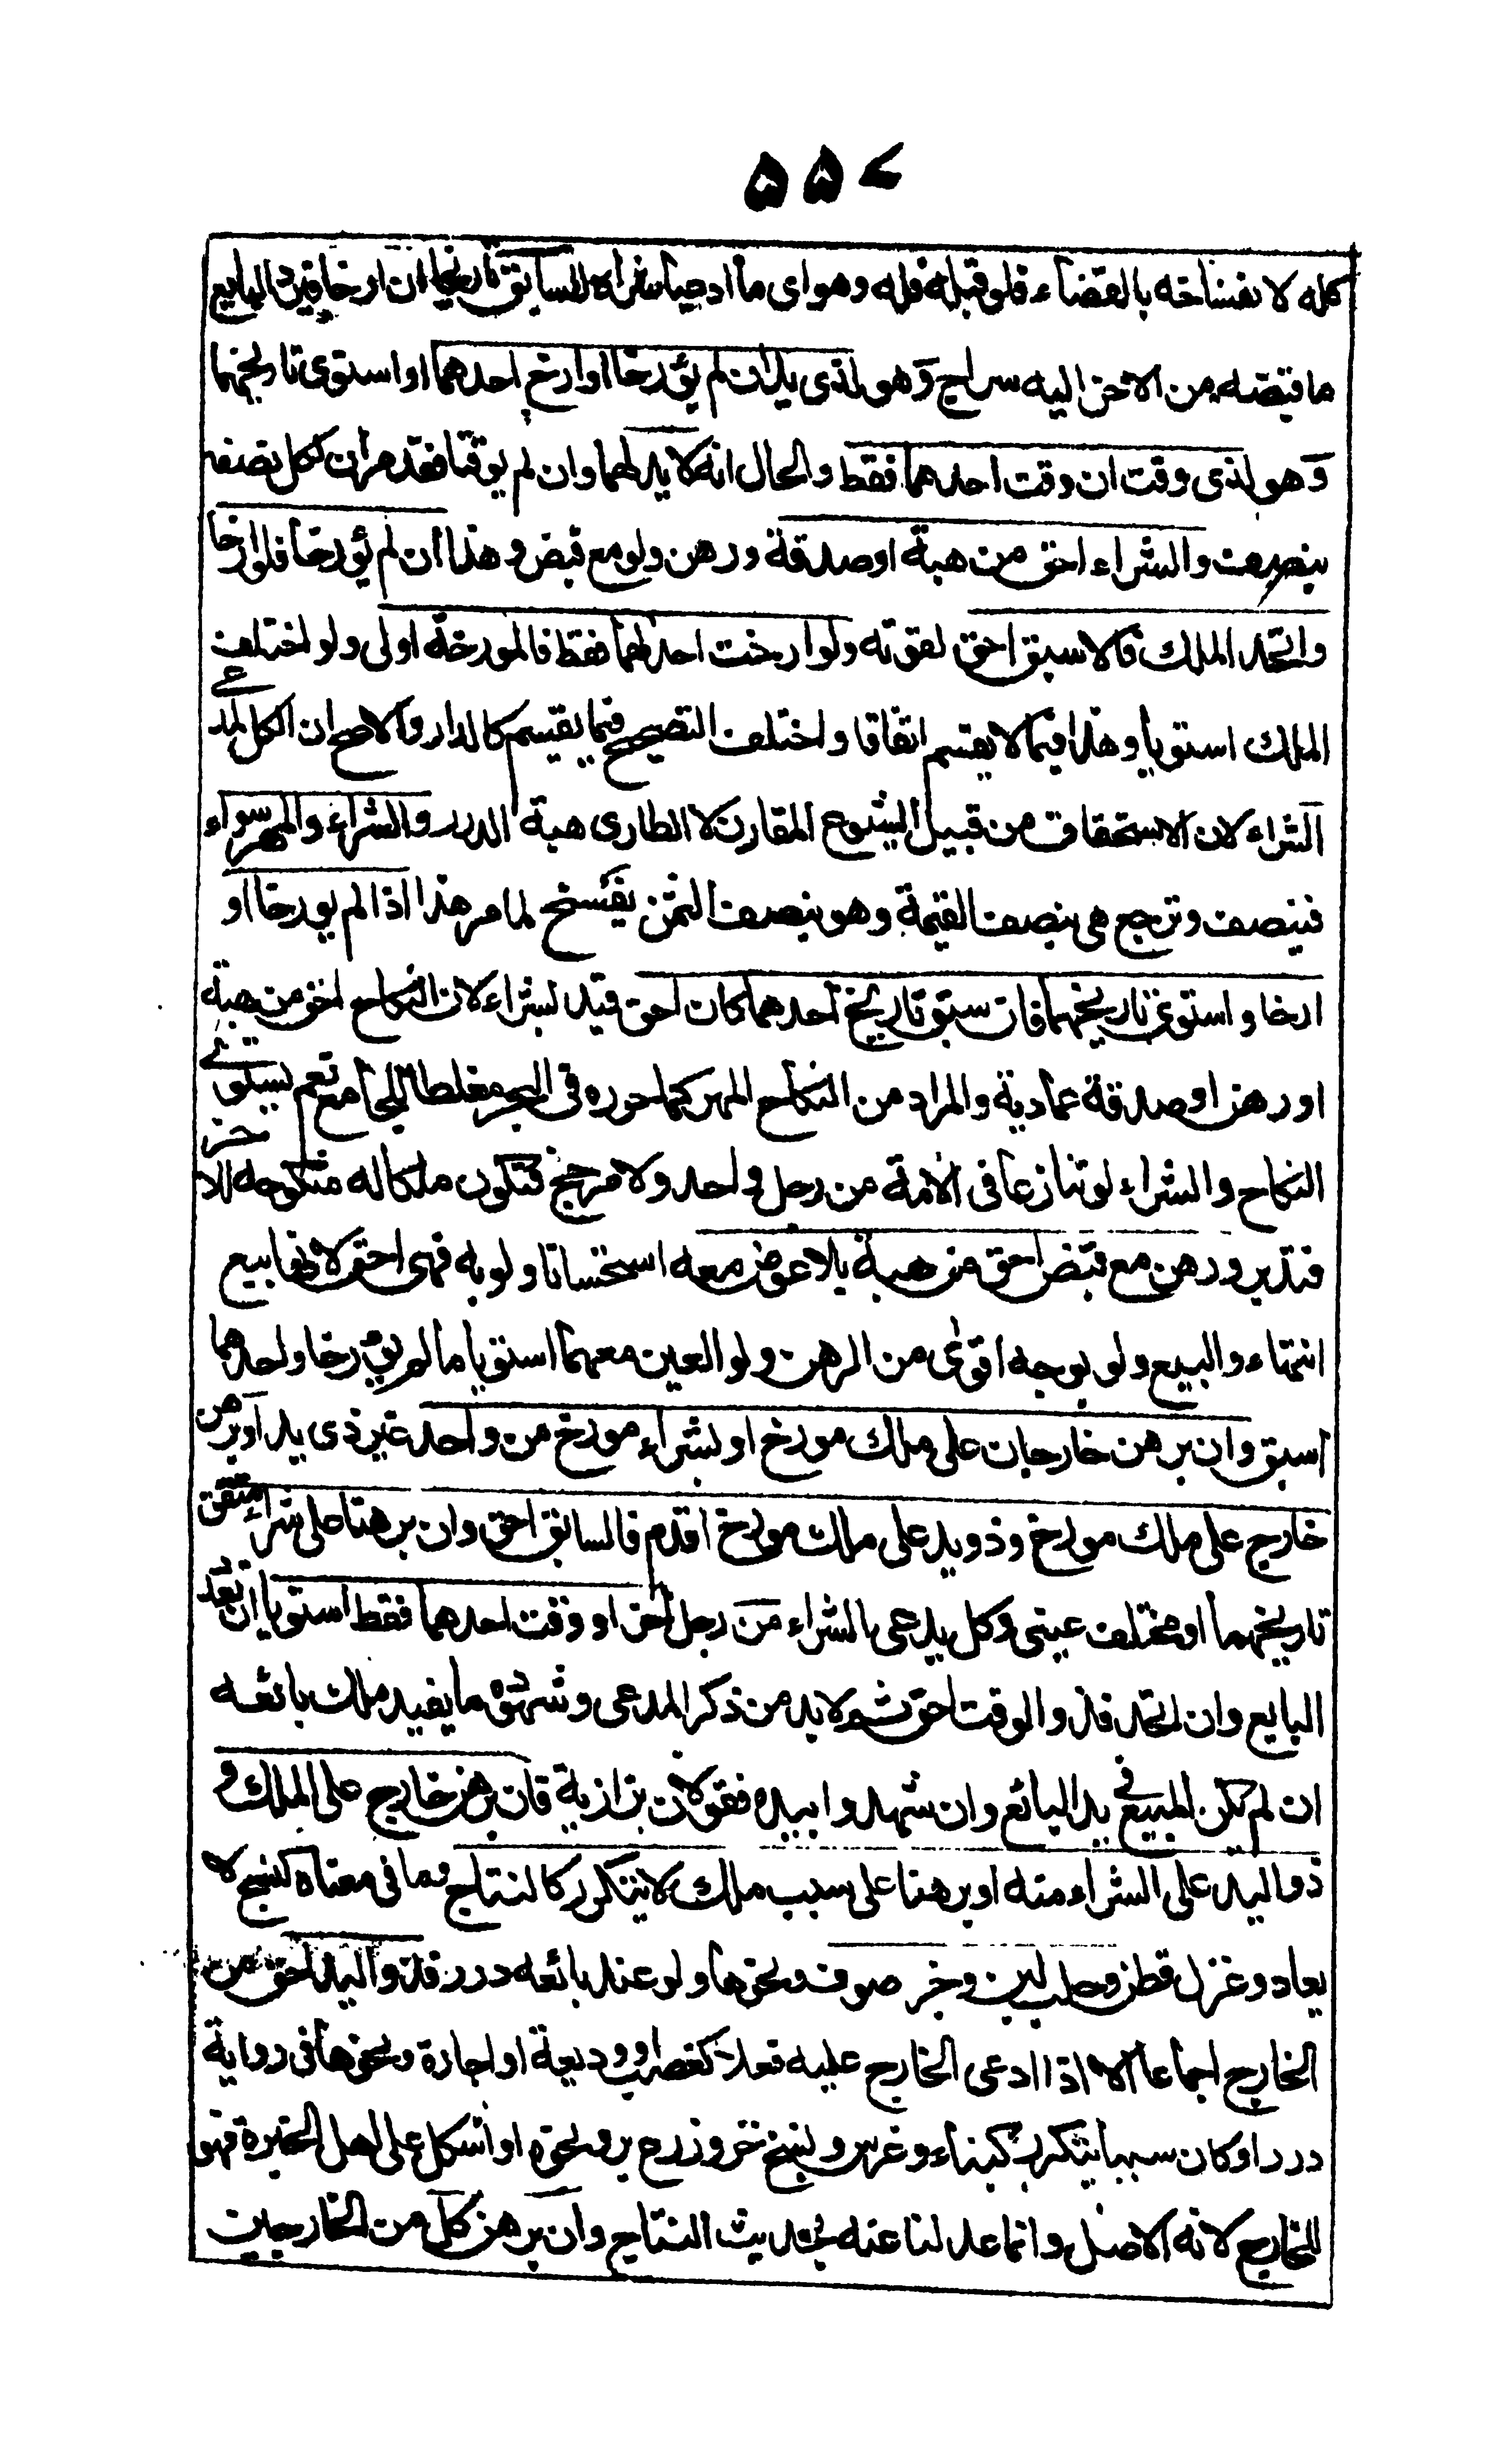 ۵۵۷
كله لا نفساخه بالقضاء فلو قبله فله وهو اى ما ادعيا شراه للسابق تاريخا ان ارخا فيرد البايع
ما قبضه من الاخر اليه سراج وهو لذى يد ان لم يؤرخا او ارخ احدهما او استوى تاريخهما
وهو لذى وقت ان وقت احدهما فقط والحال انه لا يد لهما وان لم يوقتا فقد مر ان لكل نصفه
بنصف والشراء احق من هبة او صدقة ورهن ولو مع قبض وهذا ان لم يؤرخا فلو ارخا
واتحد الملك فالاسبق احق لقوته ولو ارخت احدهما فقط فالمورخة اولى ولو اختلف
الملك استويا وهذا فيما لا يقسم اتفاقا واختلف التصحيح فيما يقسم كالدار والاصح ان الكل لمدعى
الشراء لان الاستحقاق من قبيل الشيوع المقارن لا الطارى هبة الدرر والشراء والمهر سواء
فينصف وترجع هى بنصف القيمة وهو بنصف الثمن يفسخ لما مر هذا اذا لم يورخا او
ارخا واستوى تاريخهما فان سبق تاريخ احدهما كان احق قيد بشراء لان النكاح احق من هبة
او رهن او صدقة عمادية والمراد من النكاح المهر كما حرره فى البحر مغلطا للجامع نعم يستوى
النكاح والشراء لو تنازعا فى الامة من رجل واحد ولا مرجح فتكون ملكا له منكوحة للاخر
فتدبر ورهن مع قبض احق من هبة بلا عوض معه استحسانا ولو به فهى احق لانها بيع
انتهاء والبيع ولو بوجه اقوى من الرهن ولو العين معهما استويا ما لم يؤرخا واحدهما
اسبق وان برهن خارجان على ملك مورخ او شراء مورخ من واحد غير ذى يد او برهن
خارج على ملك مورخ وذو يد على ملك مورخ اقدم فالسابق احق وان برهنا على شراء متفق
تاريخهما او مختلف عينى وكل يدعى الشراء من رجل اخر او وقت احدهما فقط استويا ان تعدد
البايع وان اتحد فذو الوقت احق ثم لا بد من ذكر المدعى وشهوده ما يفيد ملك بائعه
ان لم يكن المبيع فى يد البائع وان شهدوا بيده فقولان بزازية فان برهن خارج على الملك و
ذو اليد على الشراء منه او برهنا على سبب ملك لا يتكرر كالنتاج وما فى معناه كنسج لا
يعاد وغزل قطن وحلب لبن وجز صوف ونحوها ولو عند بائعه درر فذو اليد احق من
الخارج اجماعا الا اذا ادعى الخارج عليه فعلا كغصب او وديعة او اجارة ونحوها فى رواية
درر او كان سببا يتكرر كبناء وغرس ونسج خز وزرع بر ونحوه او اشكل على اهل الخبرة فهو
للخارج لانه الاصل وانما عدلنا عنه بحديث النتاج وان برهن كل من الخارجين